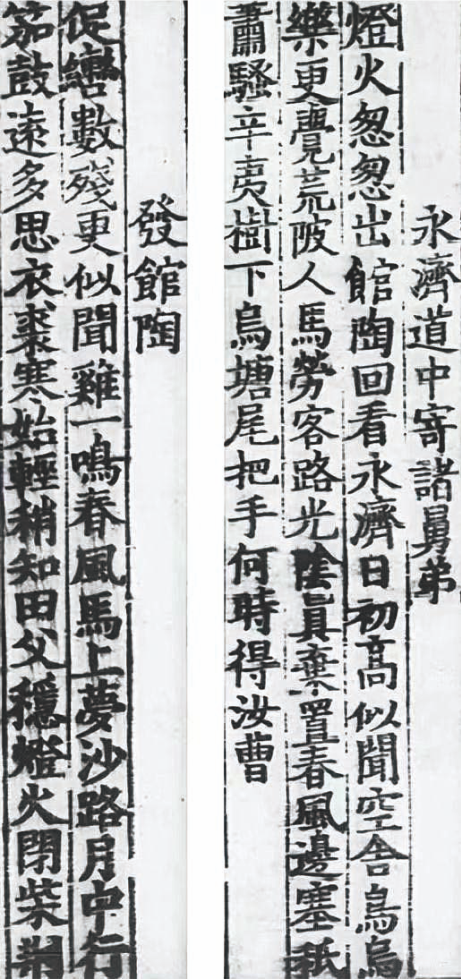 永濟道中寄諸舅弟
燈火怱怱出館陶回看永濟日初高似聞空舍鳥烏
樂更覺荒陂人馬勞客路光陰眞棄置春風邊塞秖
蕭騷辛夷樹下烏塘尾把手何時得汝曹
發館陶
促轡數殘更似聞雞一鳴春風馬上夢沙路月中行
笳鼓遠多思衣裘寒始輕稍知田父穩燈火閉柴荆